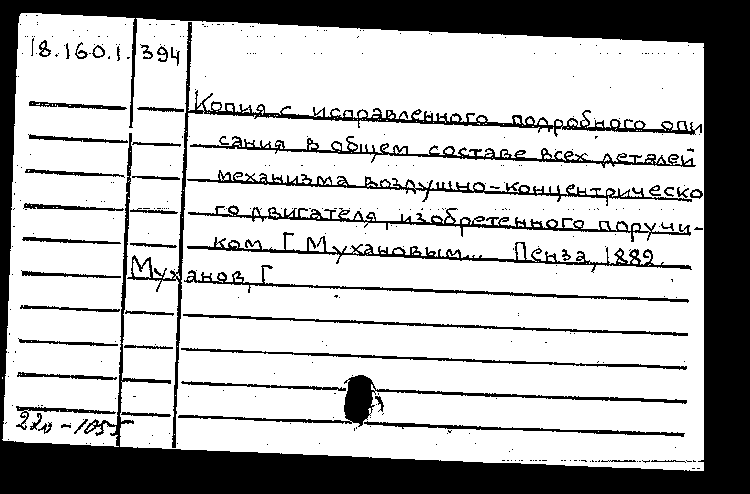 18.160.1. 394
Копия с исправленного подробного опи
сания в общем составе всех деталей
механизма воздушно-концентрическо
го двигателя, изобретенного поручи-
ком Г. Мухановым... Пенза, 1882.
Муханов, Г.
220-1055